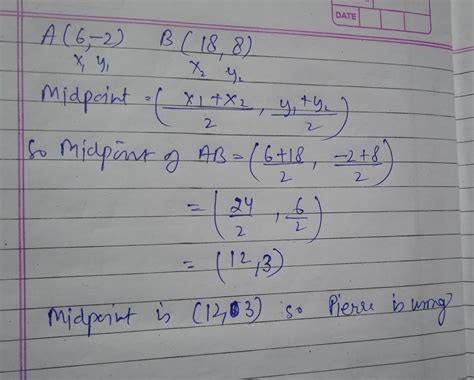 DATE
A(6,-2) B(18,8)
x₁ y₁ x₂ y₂
Midpoint = (x₁+x₂/2, y₁+y₂/2)
So Midpoint of AB = (6+18/2, -2+8/2)
= (24/2, 6/2)
= (12,3)
Midpoint is (12,3) so Pierre is wrong